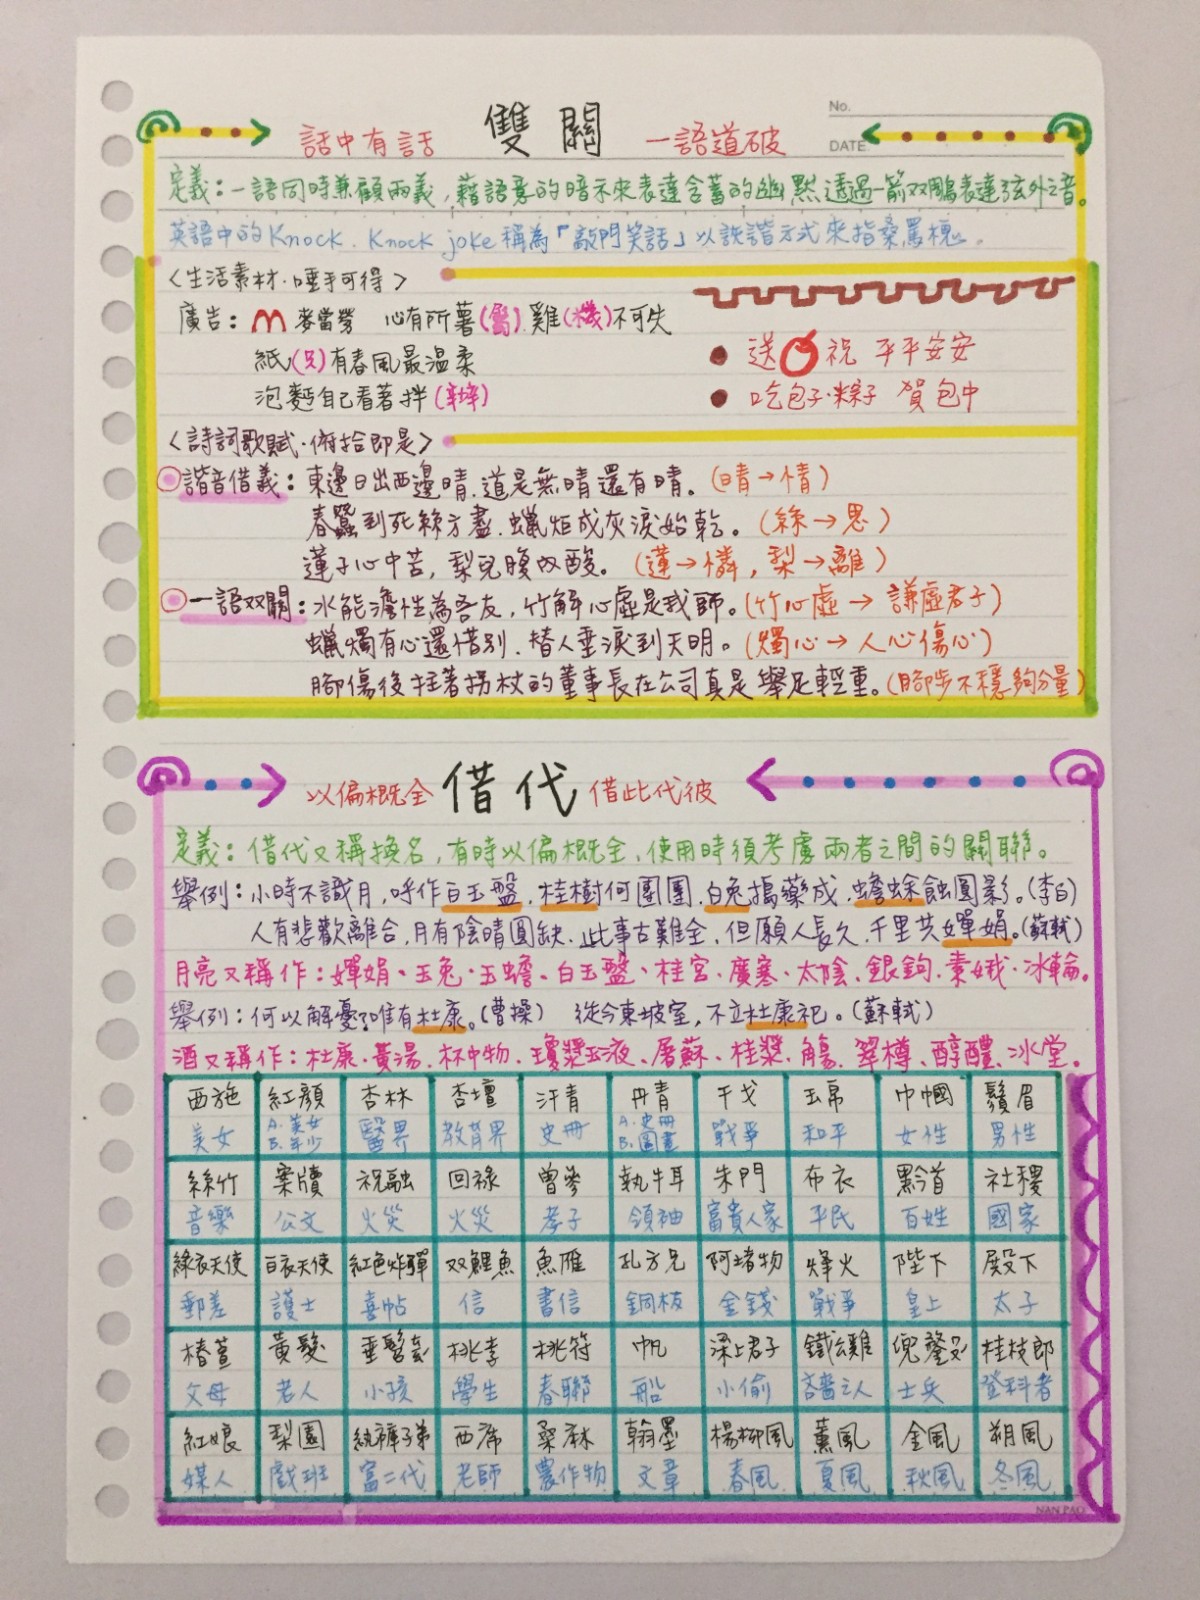 No.
DATE
話中有話 雙關 一語道破
定義：一語同時兼顧兩義，藉語意的暗示來表達含蓄的幽默透過一箭双鵰表達弦外之音。
英語中的Knock．Knock joke稱為「敲門笑話」以詼諧方式來指桑罵槐。
〈生活素材·唾手可得〉
廣告：M 麥當勞 心有所薯(屬)．雞(機)不可失
紙(只)有春風最溫柔
泡麵自己看著拌(辦)
送 祝 平平安安
吃包子·粽子 賀 包中
〈詩詞歌賦·俯拾即是〉
諧音借義：東邊日出西邊晴．道是無晴還有晴。(晴→情)
春蠶到死絲方盡．蠟炬成灰淚始乾。(絲→思)
蓮子心中苦，梨兒腹內酸。(蓮→憐，梨→離)
一語双關：水能澹性為吾友，竹解心虛是我師。(竹心虛→謙虛君子)
蠟燭有心還惜別．替人垂淚到天明。(燭心→人心傷心)
腳傷後拄著拐杖的董事長在公司真是舉足輕重。(腳步不穩夠分量)
以偏概全 借代 借此代彼
定義：借代又稱換名，有時以偏概全，使用時須考慮兩者之間的關聯。
舉例：小時不識月，呼作白玉盤，桂樹何團團．白兔搗藥成，蟾蜍蝕圓影。(李白)
人有悲歡離合，月有陰晴圓缺．此事古難全，但願人長久，千里共嬋娟。(蘇軾)
月亮又稱作：嬋娟、玉兔·玉蟾、白玉盤、桂宮、廣寒·太陰·銀鉤·素娥·冰輪。
舉例：何以解憂？唯有杜康。(曹操) 從今東坡室，不立杜康祀。(蘇軾)
酒又稱作：杜康·黃湯．杯中物．瓊漿玉液、屠蘇·桂漿．角觴．翠樽·醇醴·冰堂。
西施 紅顏 杏林 杏壇 汗青 丹青 干戈 玉帛 巾幗 鬚眉
美女 A.美女 B.年少 醫界 教育界 史冊 A.史冊 B.圖畫 戰爭 和平 女性 男性
絲竹 案牘 祝融 回祿 曾參 執牛耳 朱門 布衣 黔首 社稷
音樂 公文 火災 火災 孝子 領袖 富貴人家 平民 百姓 國家
綠衣天使 白衣天使 紅色炸彈 双鯉魚 魚雁 孔方兄 阿堵物 烽火 陛下 殿下
郵差 護士 喜帖 信 書信 銅板 金錢 戰爭 皇上 太子
椿萱 黃髮 垂髫 桃李 桃符 帆 梁上君子 鐵公雞 兜鍪 桂枝郎
父母 老人 小孩 學生 春聯 船 小偷 吝嗇之人 士兵 登科者
紅娘 梨園 紈褲子弟 西席 桑麻 翰墨 楊柳風 薰風 金風 朔風
媒人 戲班 富二代 老師 農作物 文章 春風 夏風 秋風 冬風
NAN PAO